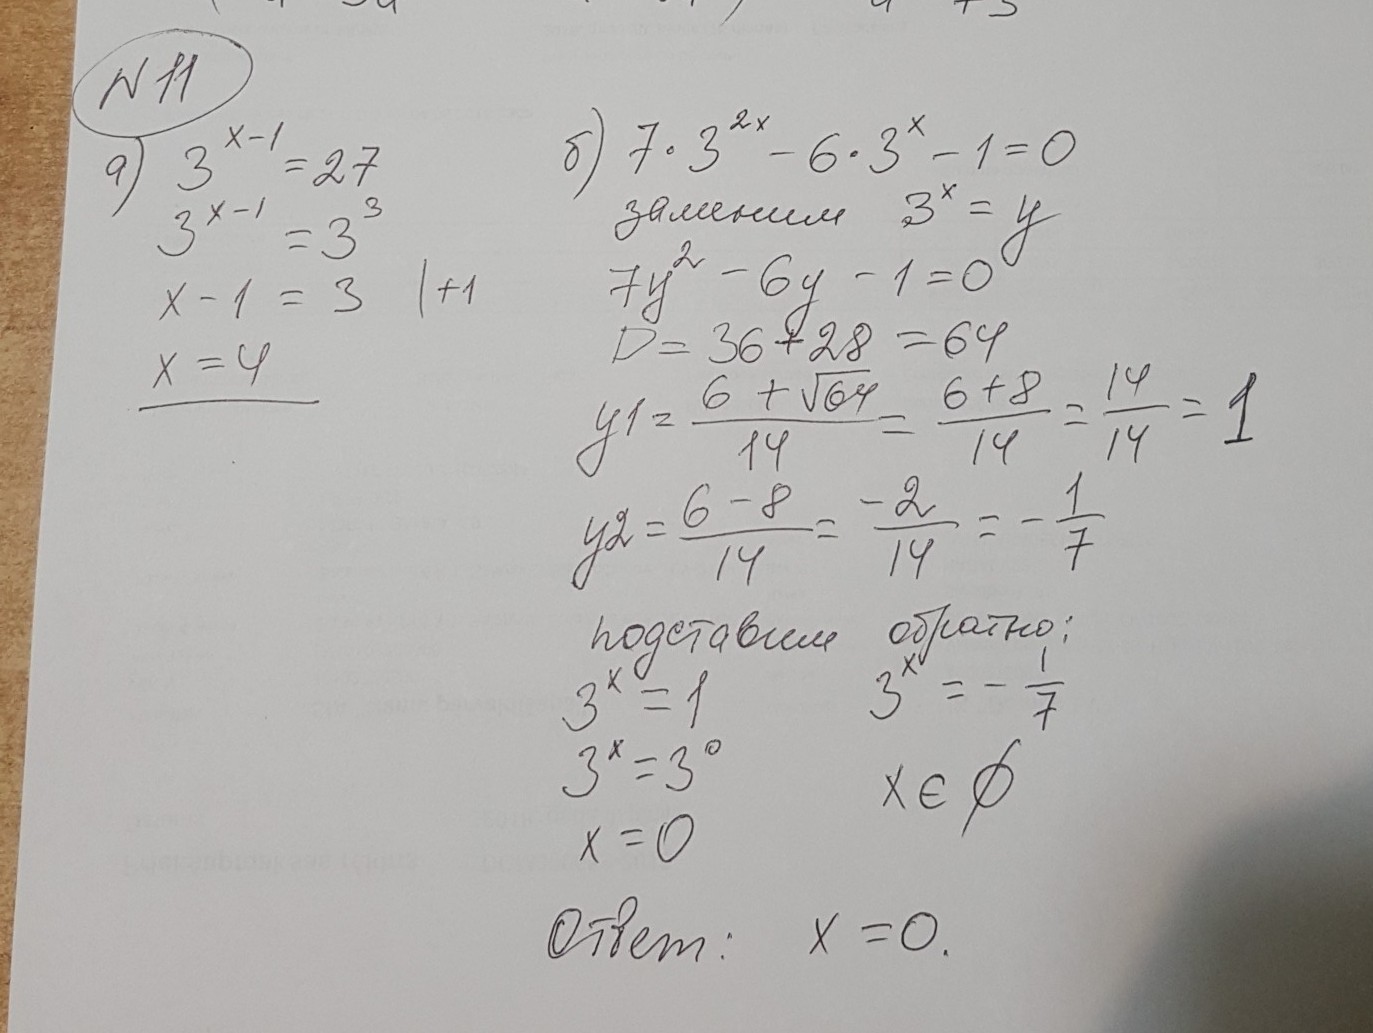 N11
а) 3^{x-1} = 27
3^{x-1} = 3^3
x - 1 = 3 | +1
x = 4
б) 7·3^{2x} - 6·3^x - 1 = 0
заменим 3^x = y
7y^2 - 6y - 1 = 0
D = 36 + 28 = 64
y1 = (6 + √64)/14 = (6+8)/14 = 14/14 = 1
y2 = (6 - 8)/14 = -2/14 = -1/7
подставим обратно:
3^x = 1 3^x = -1/7
3^x = 3^0 x ∈ ∅
x = 0
Ответ: x = 0.